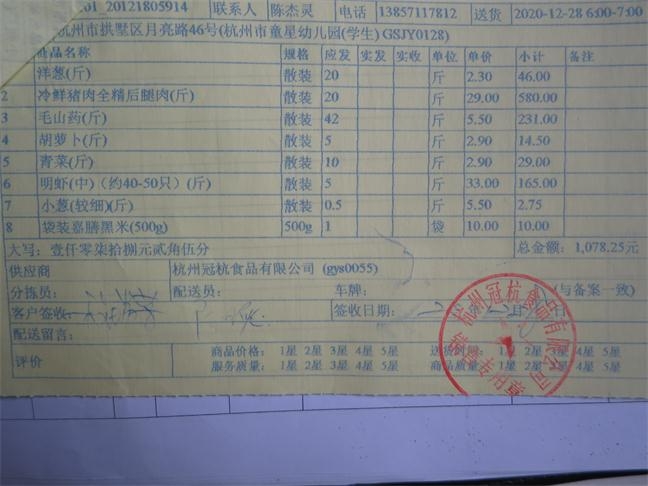 01_20121805914 联系人 陈杰灵 电话 13857117812 送货 2020-12-28 6:00-7:00
杭州市拱墅区月亮路46号(杭州市童星幼儿园(学生)GSJY0128)
商品名称 规格 应发 实发 实收 单位 单价 小计 备注
洋葱(斤) 散装 20 斤 2.30 46.00
2 冷鲜猪肉全精后腿肉(斤) 散装 20 斤 29.00 580.00
3 毛山药(斤) 散装 42 斤 5.50 231.00
4 胡萝卜(斤) 散装 5 斤 2.90 14.50
5 青菜(斤) 散装 10 斤 2.90 29.00
6 明虾(中)（约40-50只）(斤) 散装 5 斤 33.00 165.00
7 小葱(较细)(斤) 散装 0.5 斤 5.50 2.75
8 袋装嘉膳黑米(500g) 500g 1 袋 10.00 10.00
大写：壹仟零柒拾捌元贰角伍分 总金额：1,078.25元
供应商 杭州冠杭食品有限公司 (gys0055)
分拣员： 配送员： 车牌： (与备案一致)
客户签收： 签收日期： 月 日
配送留言：
评价 商品价格： 1星 2星 3星 4星 5星 送货时间： 1星 2星 3星 4星 5星
服务质量： 1星 2星 3星 4星 5星 商品质量： 1星 2星 3星 4星 5星
杭州冠杭食品有限公司
销售专用章